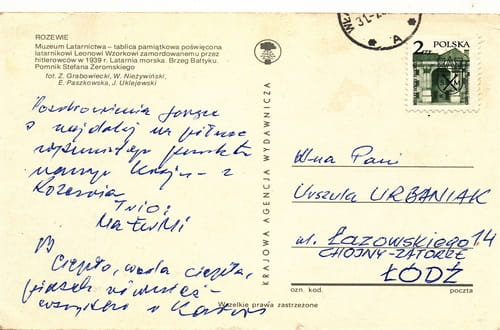 ROZEWIE
Muzeum Latarnictwa – tablica pamiątkowa poświęcona
latarnikowi Leonowi Wzorkowi zamordowanemu przez
hitlerowców w 1939 r. Latarnia morska. Brzeg Bałtyku.
Pomnik Stefana Żeromskiego
fot. Z. Grabowiecki, W. Nieżywiński,
E. Paszkowska, J. Uklejewski
Pozdrowienia gorące
z najdalej na północ
wysuniętego punktu
naszego Kraju - z
Rozewia
Trio:
Ciepło, woda ciepła,
KRAJOWA AGENCJA WYDAWNICZA
31.
A
2 zł POLSKA
Wna Pani
Urszula URBANIAK
ul. Łazowskiego 14
CHOJNY-ZATORZE
ŁÓDŹ
ozn. kod. poczta
Wszelkie prawa zastrzeżone